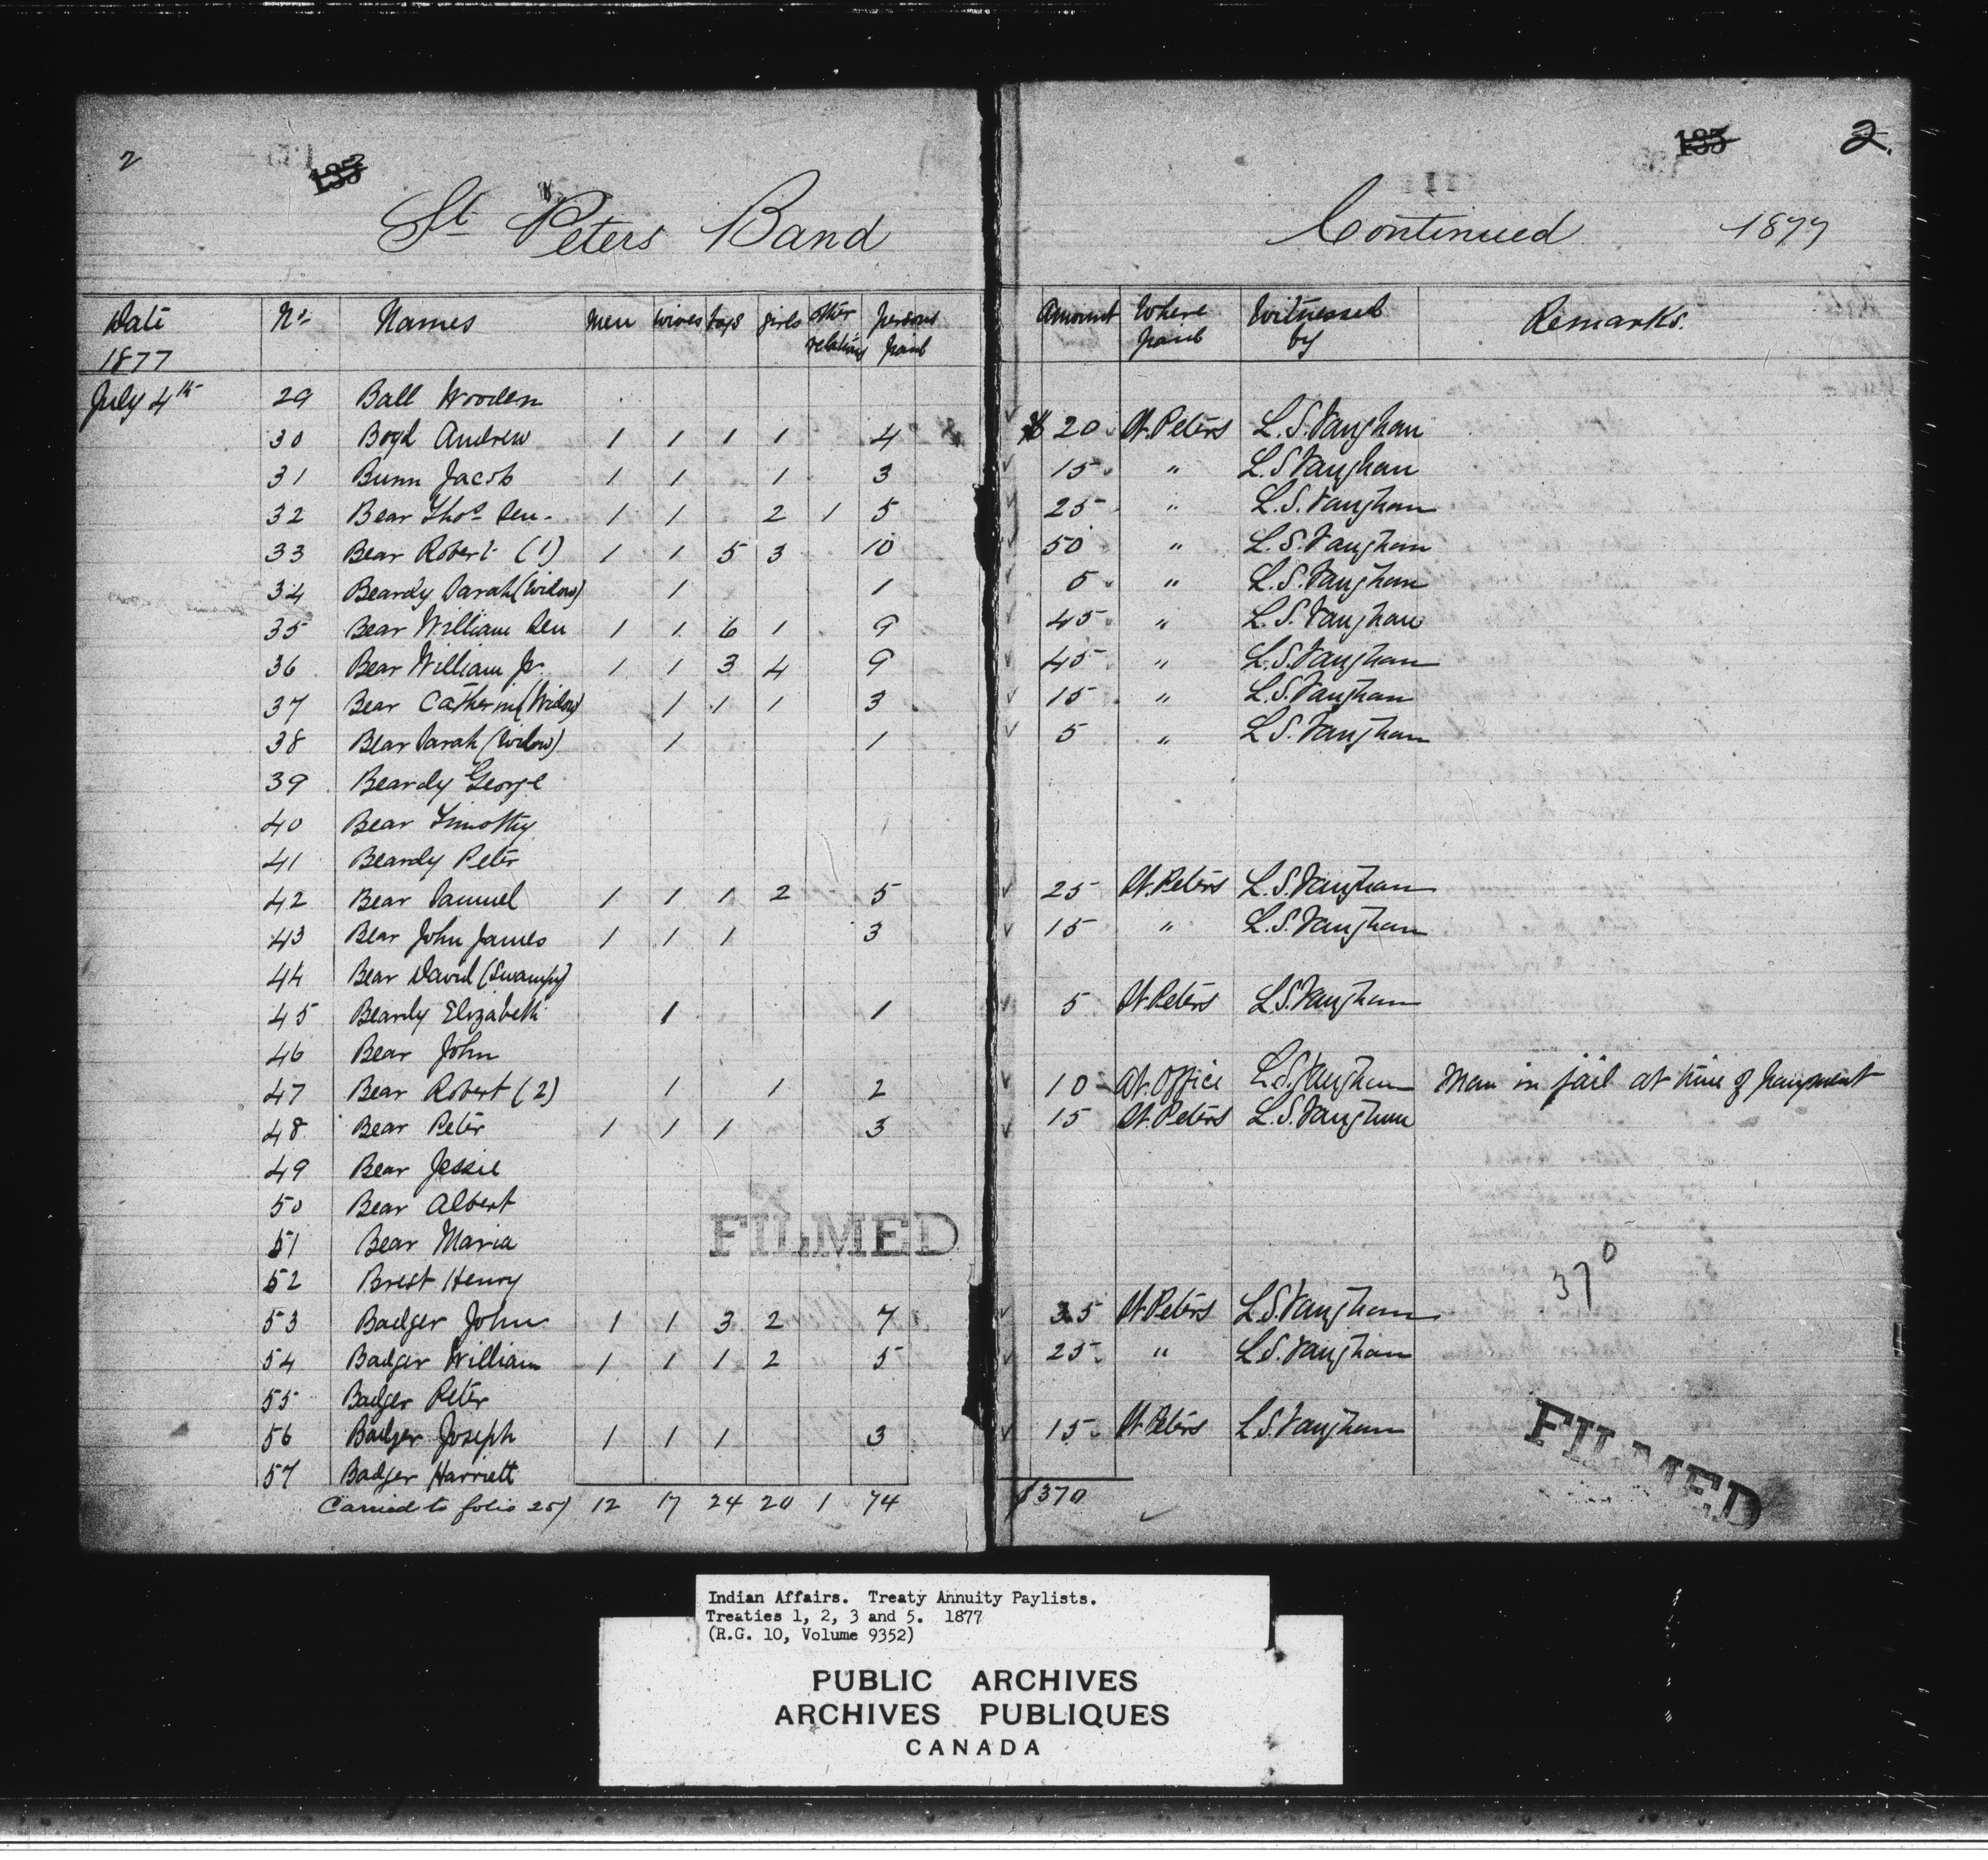 2 135 135 2.
St Peters Band Continued 1877
Date 1877 No. Names men wives boys girls other relations persons paid Amount Where paid Witnessed by Remarks.
July 4th 29 Ball Wooden
30 Boyd Andrew 1 1 1 1 4 $ 20 St. Peters L.S. Vaughan
31 Bunn Jacob 1 1 1 3 15 " L.S. Vaughan
32 Bear Thos Sen. 1 1 2 1 5 25 " L.S. Vaughan
33 Bear Robert (1) 1 1 5 3 10 50 " L.S. Vaughan
34 Beardy Sarah (Widow) 1 1 5 " L.S. Vaughan
35 Bear William Sen 1 1 6 1 9 45 " L.S. Vaughan
36 Bear William Jr. 1 1 3 4 9 45 " L.S. Vaughan
37 Bear Catherin (Widow) 1 1 1 3 15 " L.S. Vaughan
38 Bear Sarah (Widow) 1 1 5 " L.S. Vaughan
39 Beardy George
40 Bear Timothy
41 Beardy Peter
42 Bear Samuel 1 1 1 2 5 25 St. Peters L.S. Vaughan
43 Bear John James 1 1 1 3 15 " L.S. Vaughan
44 Bear David (Swampy)
45 Beardy Elizabeth 1 1 5 St. Peters L.S. Vaughan
46 Bear John
47 Bear Robert (2) 1 1 2 10 At. Office L.S. Vaughan Man in jail at time of payment
48 Bear Peter 1 1 1 3 15 St. Peters L.S. Vaughan
49 Bear Jessie
50 Bear Albert
51 Bear Maria
FILMED
52 Brest Henry
370
53 Badger John 1 1 3 2 7 35 St. Peters L.S. Vaughan
54 Badger William 1 1 1 2 5 25 " L.S. Vaughan
55 Badger Peter
56 Badger Joseph 1 1 1 3 15 St. Peters L.S. Vaughan
57 Badger Harriett
FILMED
Carried to folio 25) 12 17 24 20 1 74 $370
Indian Affairs. Treaty Annuity Paylists.
Treaties 1, 2, 3 and 5. 1877
(R.G. 10, Volume 9352)
PUBLIC ARCHIVES
ARCHIVES PUBLIQUES
CANADA